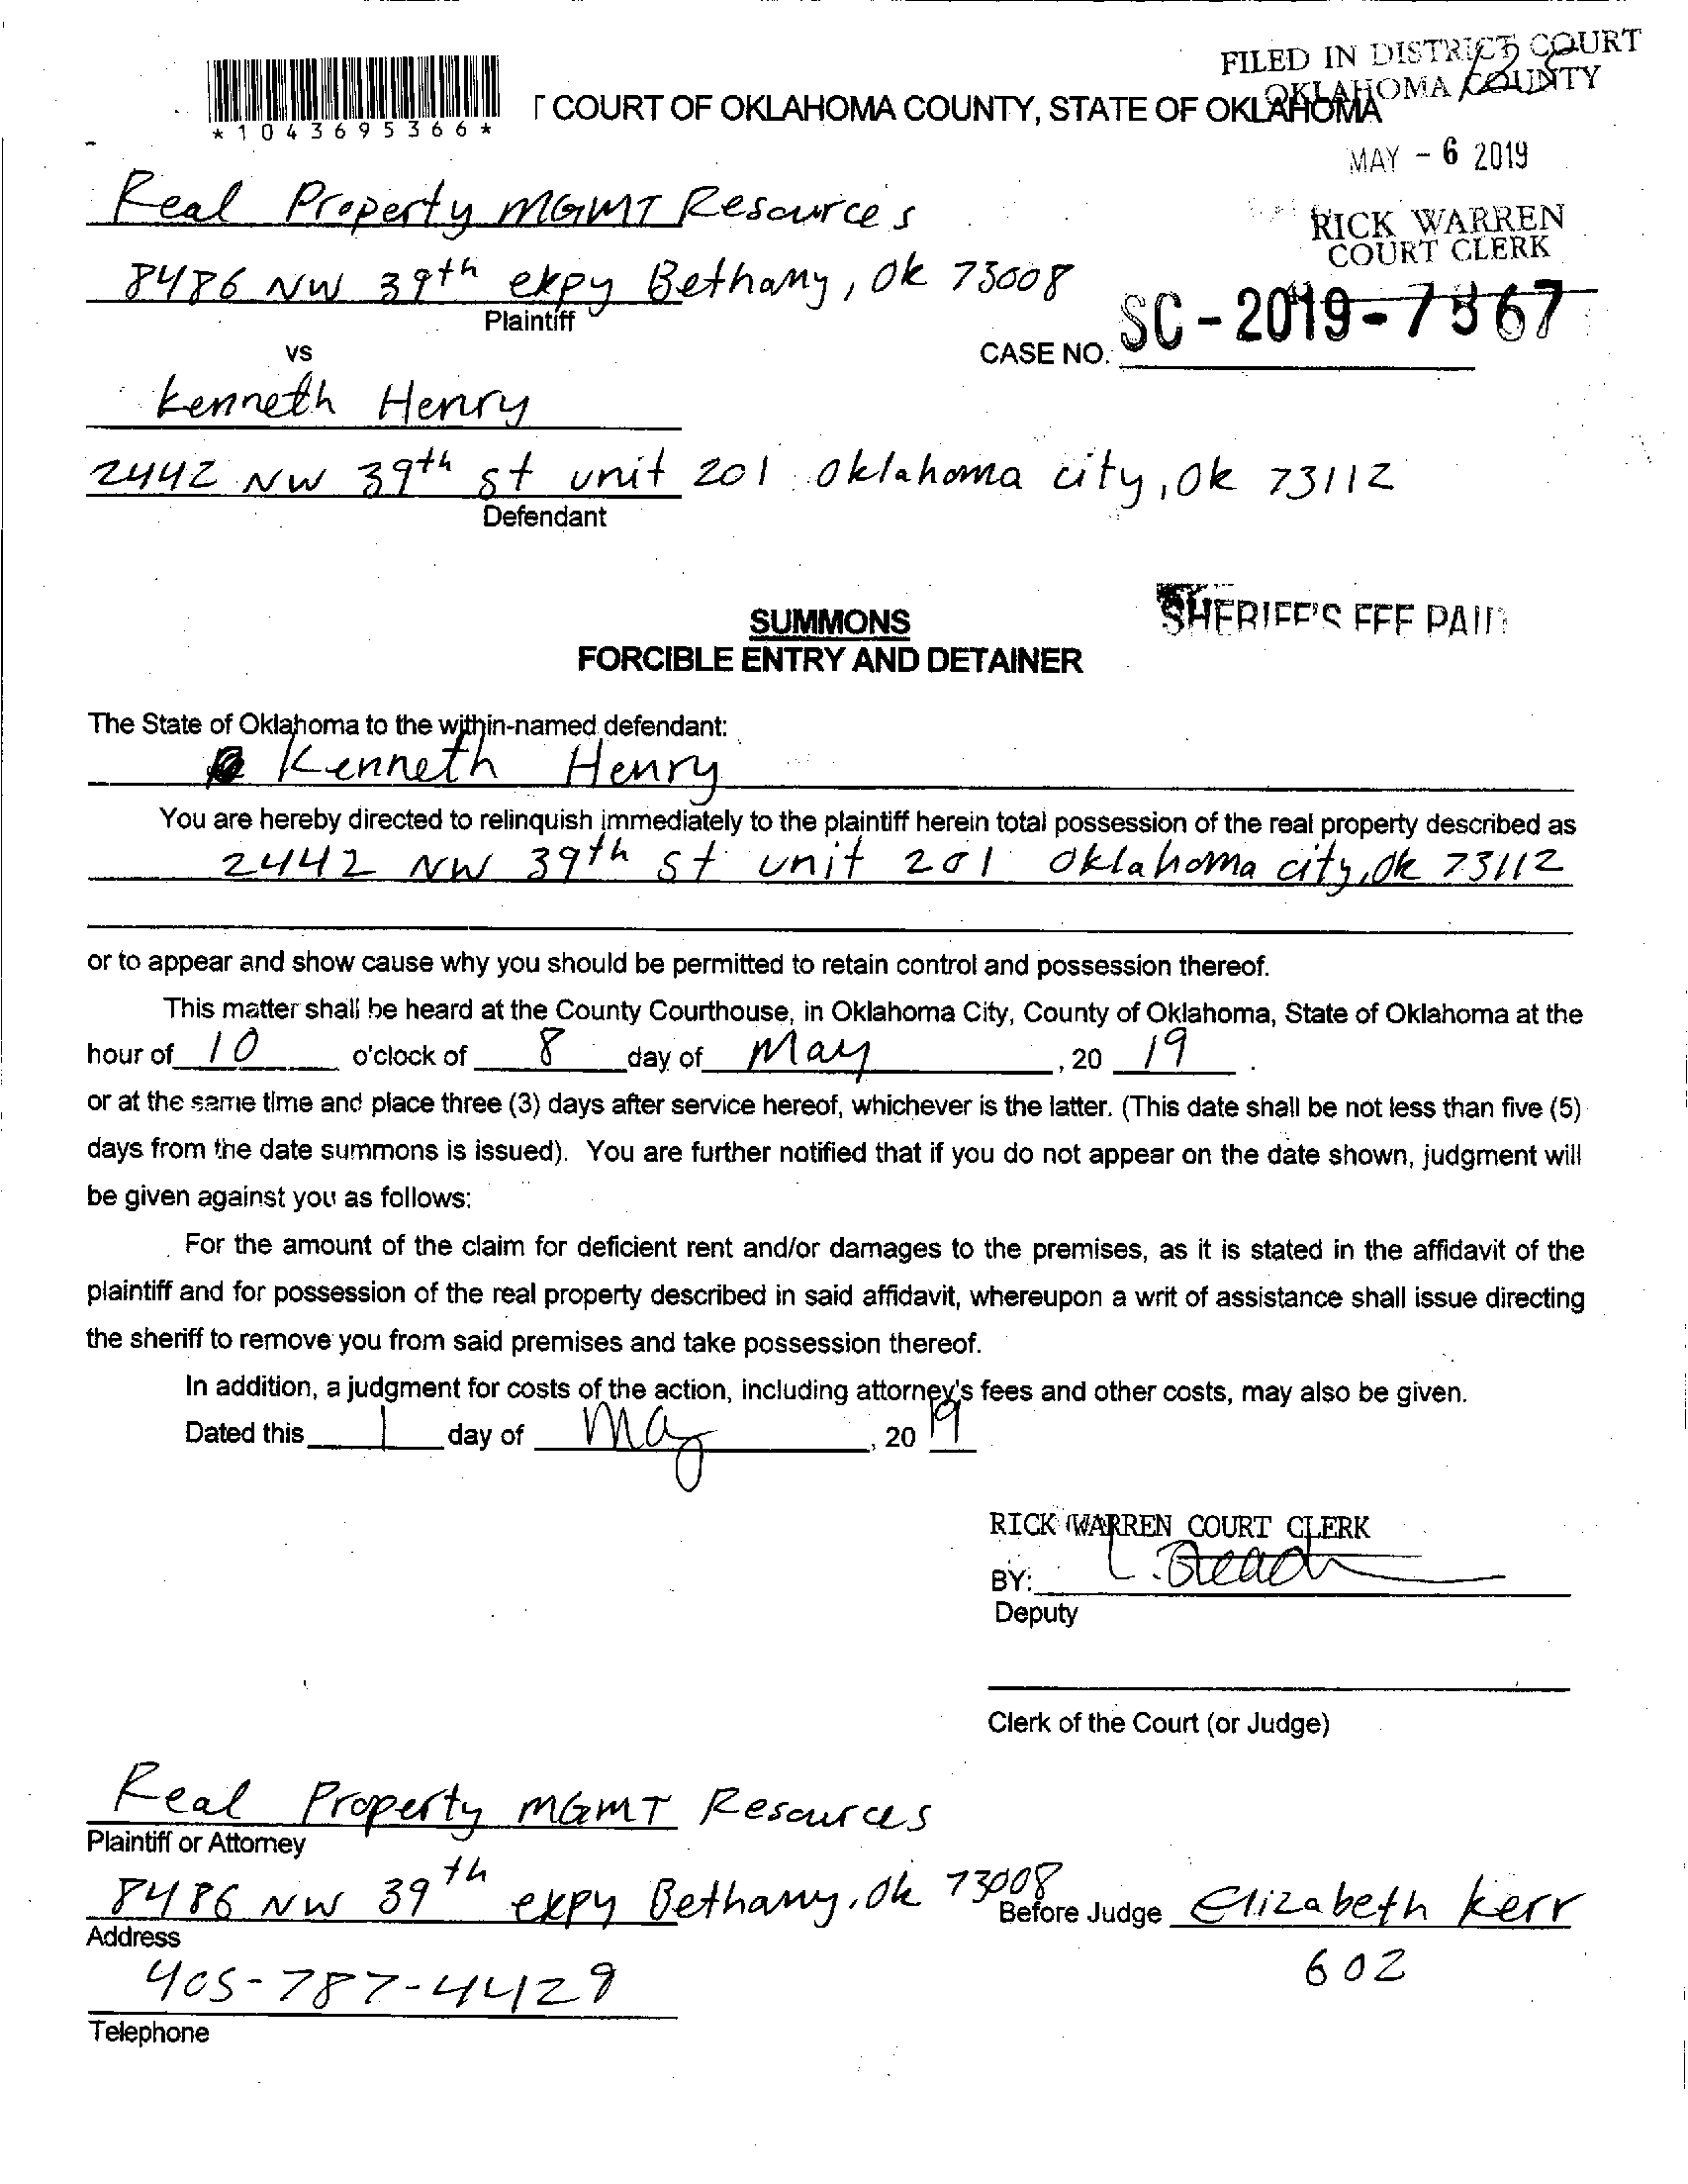 FILED IN DISTRICT COURT
OKLAHOMA COUNTY
*1043695366*
T COURT OF OKLAHOMA COUNTY, STATE OF OKLAHOMA
MAY - 6 2019
Real Property MGMT Resources
RICK WARREN
COURT CLERK
8486 NW 39th expy Bethany, Ok 73008
Plaintiff
vs
CASE NO. SC-2019-7867
Kenneth Henry
2442 NW 39th st unit 201 Oklahoma city, Ok 73112
Defendant
SUMMONS
SHERIFF'S FEE PAID
FORCIBLE ENTRY AND DETAINER
The State of Oklahoma to the within-named defendant:
Kenneth Henry
You are hereby directed to relinquish immediately to the plaintiff herein total possession of the real property described as
2442 NW 39th st unit 201 Oklahoma city, Ok 73112
or to appear and show cause why you should be permitted to retain control and possession thereof.
This matter shall be heard at the County Courthouse, in Oklahoma City, County of Oklahoma, State of Oklahoma at the
hour of 10 o'clock of 8 day of May, 20 19.
or at the same time and place three (3) days after service hereof, whichever is the latter. (This date shall be not less than five (5)
days from the date summons is issued). You are further notified that if you do not appear on the date shown, judgment will
be given against you as follows:
For the amount of the claim for deficient rent and/or damages to the premises, as it is stated in the affidavit of the
plaintiff and for possession of the real property described in said affidavit, whereupon a writ of assistance shall issue directing
the sheriff to remove you from said premises and take possession thereof.
In addition, a judgment for costs of the action, including attorney's fees and other costs, may also be given.
Dated this 1 day of May, 20 19
RICK WARREN COURT CLERK
BY:
Deputy
Clerk of the Court (or Judge)
Real Property MGMT Resources
Plaintiff or Attorney
8486 NW 39th expy Bethany, Ok 73008
Before Judge Elizabeth Kerr
Address
602
405-787-4429
Telephone